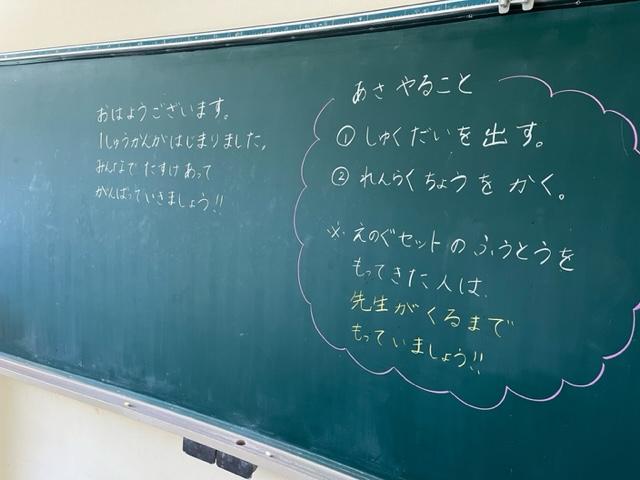 おはようございます。
1しゅうかんがはじまりました。
みんなで たすけあって
がんばっていきましょう!!
あさ やること
① しゅくだいを 出す。
② れんらくちょうを かく。
※ えのぐセットの ふうとうを
もってきた人は、
先生が くるまで
もっていましょう!!